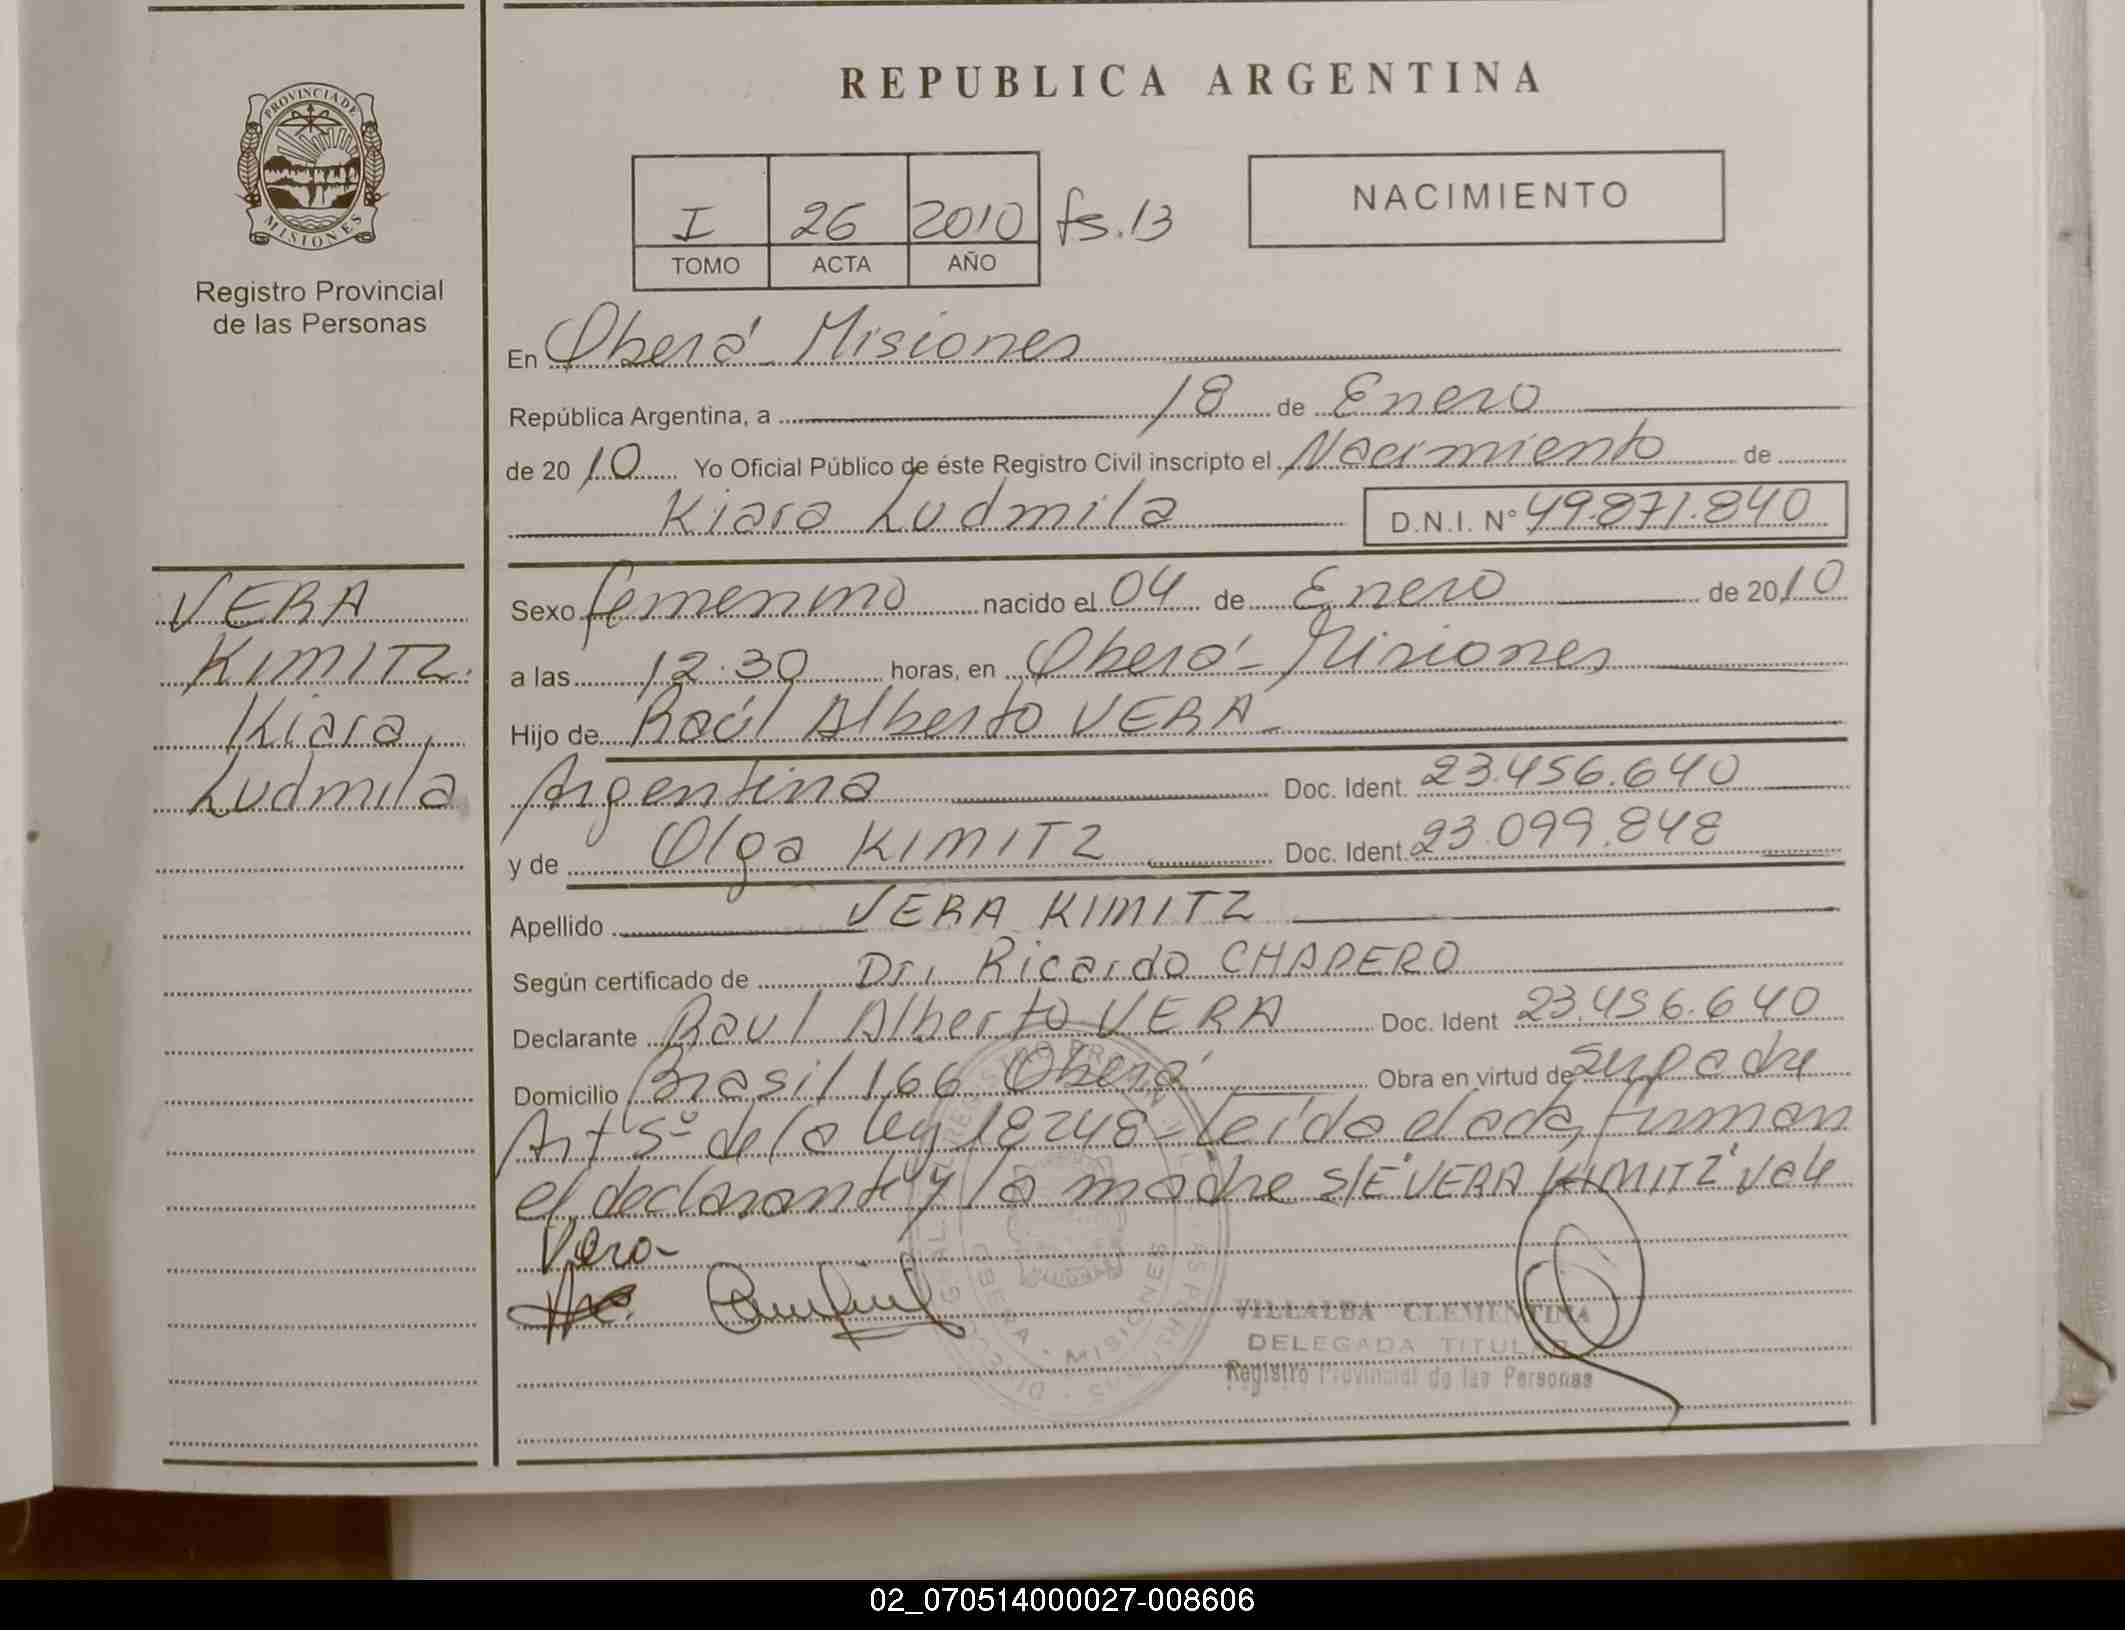 REPUBLICA ARGENTINA
PROVINCIA DE MISIONES
Registro Provincial
de las Personas
I 26 2010 fs.13
TOMO ACTA AÑO
NACIMIENTO
En Oberá - Misiones
República Argentina, a 18 de Enero
de 20 10 Yo Oficial Público de éste Registro Civil inscripto el Nacimiento de
Kiara Ludmila D.N.I. N° 49.871.840
VERA
KIMITZ.
Kiara
Ludmila
Sexo femenino nacido el 04 de Enero de 20 10
a las 12.30 horas, en Oberá - Misiones
Hijo de Raúl Alberto VERA -
Argentina Doc. Ident. 23.456.640
y de Olga KIMITZ Doc. Ident. 23.099.848
Apellido VERA KIMITZ
Según certificado de Dr. Ricardo CHAPERO
Declarante Raul Alberto VERA Doc. Ident 23.456.640
Domicilio Brasil 166 Oberá Obra en virtud de su padre
Art 5º de la ley 18248 - Leída el acta, firman
el declarante y la madre S/E "VERA KIMITZ" vale
Vera -
VILLALBA CLEMENTINA
DELEGADA TITULAR
Registro Provincial de las Personas
OBERA - MISIONES
02_070514000027-008606